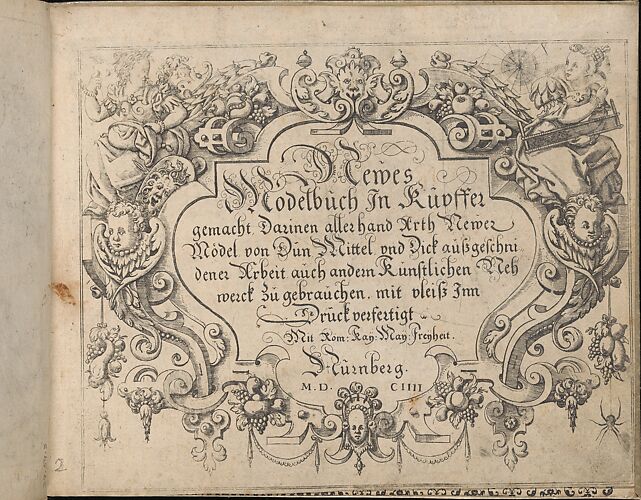 Newes
Modelbuch In Kupffer
gemacht Darinen allerhand Arth Newer
Mödel von Dün Mittel vnd Dick außgeschni
dener Arbeit auch andern Künstlichen Neh
werck zu gebrauchen. mit vleiß Inn
Druck verfertigt
Mit Rom: Kay: May: freyheit.
Nürnberg.
M. D. CIIII
2